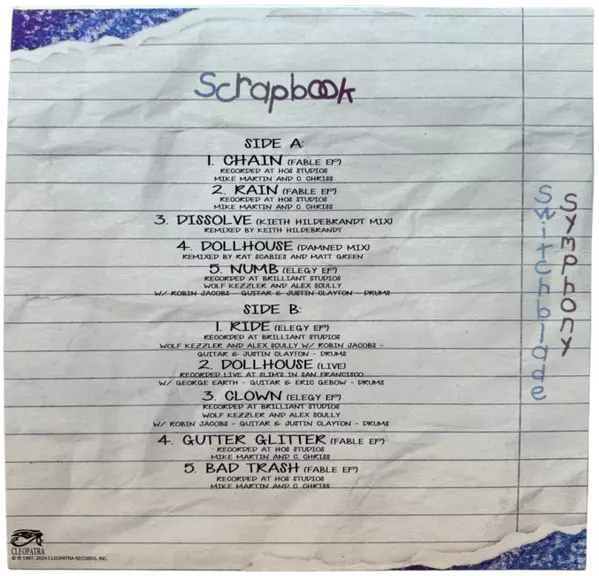 Scrapbook
SIDE A:
1. CHAIN (FABLE EP)
RECORDED AT HOS STUDIOS
MIKE MARTIN AND C. CHRISS
2. RAIN (FABLE EP)
RECORDED AT HOS STUDIOS
MIKE MARTIN AND C. CHRISS
3. DISSOLVE (KIETH HILDEBRANDT MIX)
REMIXED BY KEITH HILDEBRANDT
4. DOLLHOUSE (DAMNED MIX)
REMIXED BY RAT SCABIES AND MATT GREEN
5. NUMB (ELEGY EP)
RECORDED AT BRILLIANT STUDIOS
WOLF KEZZLER AND ALEX SCULLY
W/ ROBIN JACOBS - GUITAR & JUSTIN CLAYTON - DRUMS
SIDE B:
1. RIDE (ELEGY EP)
RECORDED AT BRILLIANT STUDIOS
WOLF KEZZLER AND ALEX SCULLY W/ ROBIN JACOBS -
GUITAR & JUSTIN CLAYTON - DRUMS
2. DOLLHOUSE (LIVE)
RECORDED LIVE AT SLIM'S IN SAN FRANCISCO
W/ GEORGE EARTH - GUITAR & ERIC GEBOW - DRUMS
3. CLOWN (ELEGY EP)
RECORDED AT BRILLIANT STUDIOS
WOLF KEZZLER AND ALEX SCULLY
W/ ROBIN JACOBS - GUITAR & JUSTIN CLAYTON - DRUMS
4. GUTTER GLITTER (FABLE EP)
RECORDED AT HOS STUDIOS
MIKE MARTIN AND C. CHRISS
5. BAD TRASH (FABLE EP)
RECORDED AT HOS STUDIOS
MIKE MARTIN AND C. CHRISS
Switchblade
Symphony
CLEOPATRA
℗ © 1997, 2024 CLEOPATRA RECORDS, INC.